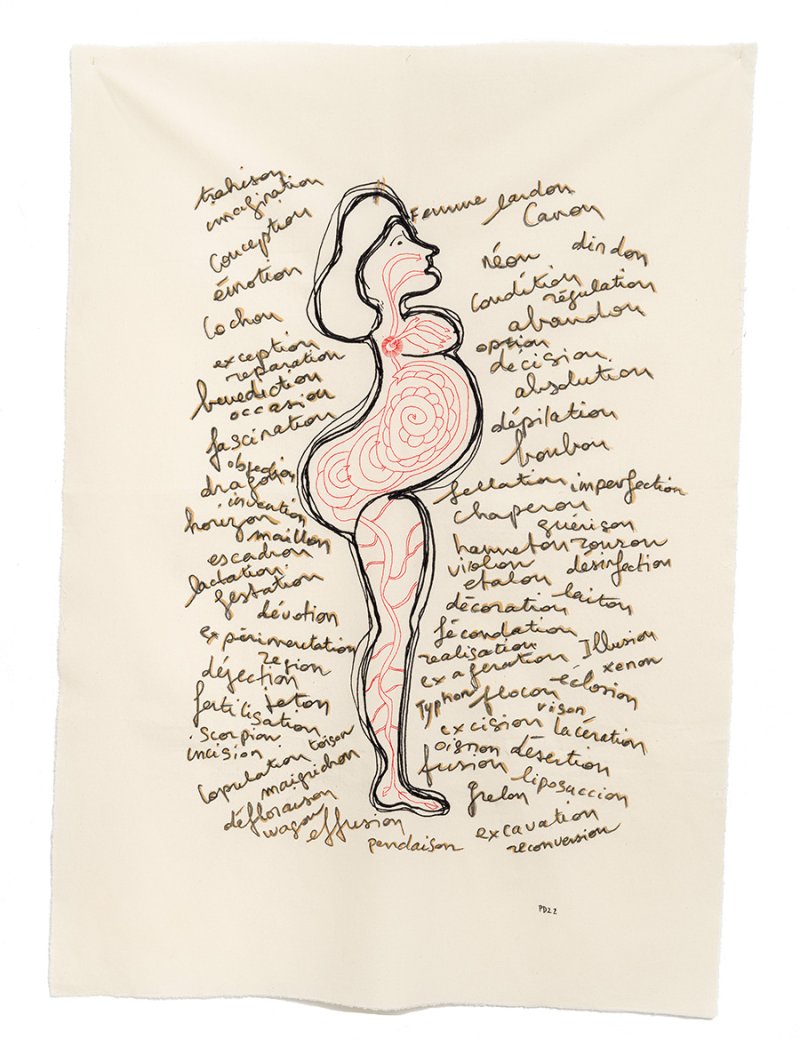 trahison
imagination
conception
émotion
Cochon
exception
reparation
benediction
occasion
fascination
objection
dragon
invention
horizon
maillon
escadron
lactation
gestation
dévotion
expérimentation
region
déjection
teton
fertilisation
scorpion
incision
toison
Copulation
maigrichon
défloraison
wagon
effusion
pendaison
Femme lardon
Canon
néon dindon
condition
régulation
abandon
option
décision
absolution
dépilation
bonbon
fellation imperfection
chaperon
guérison
hanneton
violon desinfection
etalon
décoration laiton
fécondation
realisation Illusion
exageration xenon
Typhon flocon éclosion
vison
excision lacération
oignon désertion
fusion liposuccion
grelon
excavation
reconversion
PD22